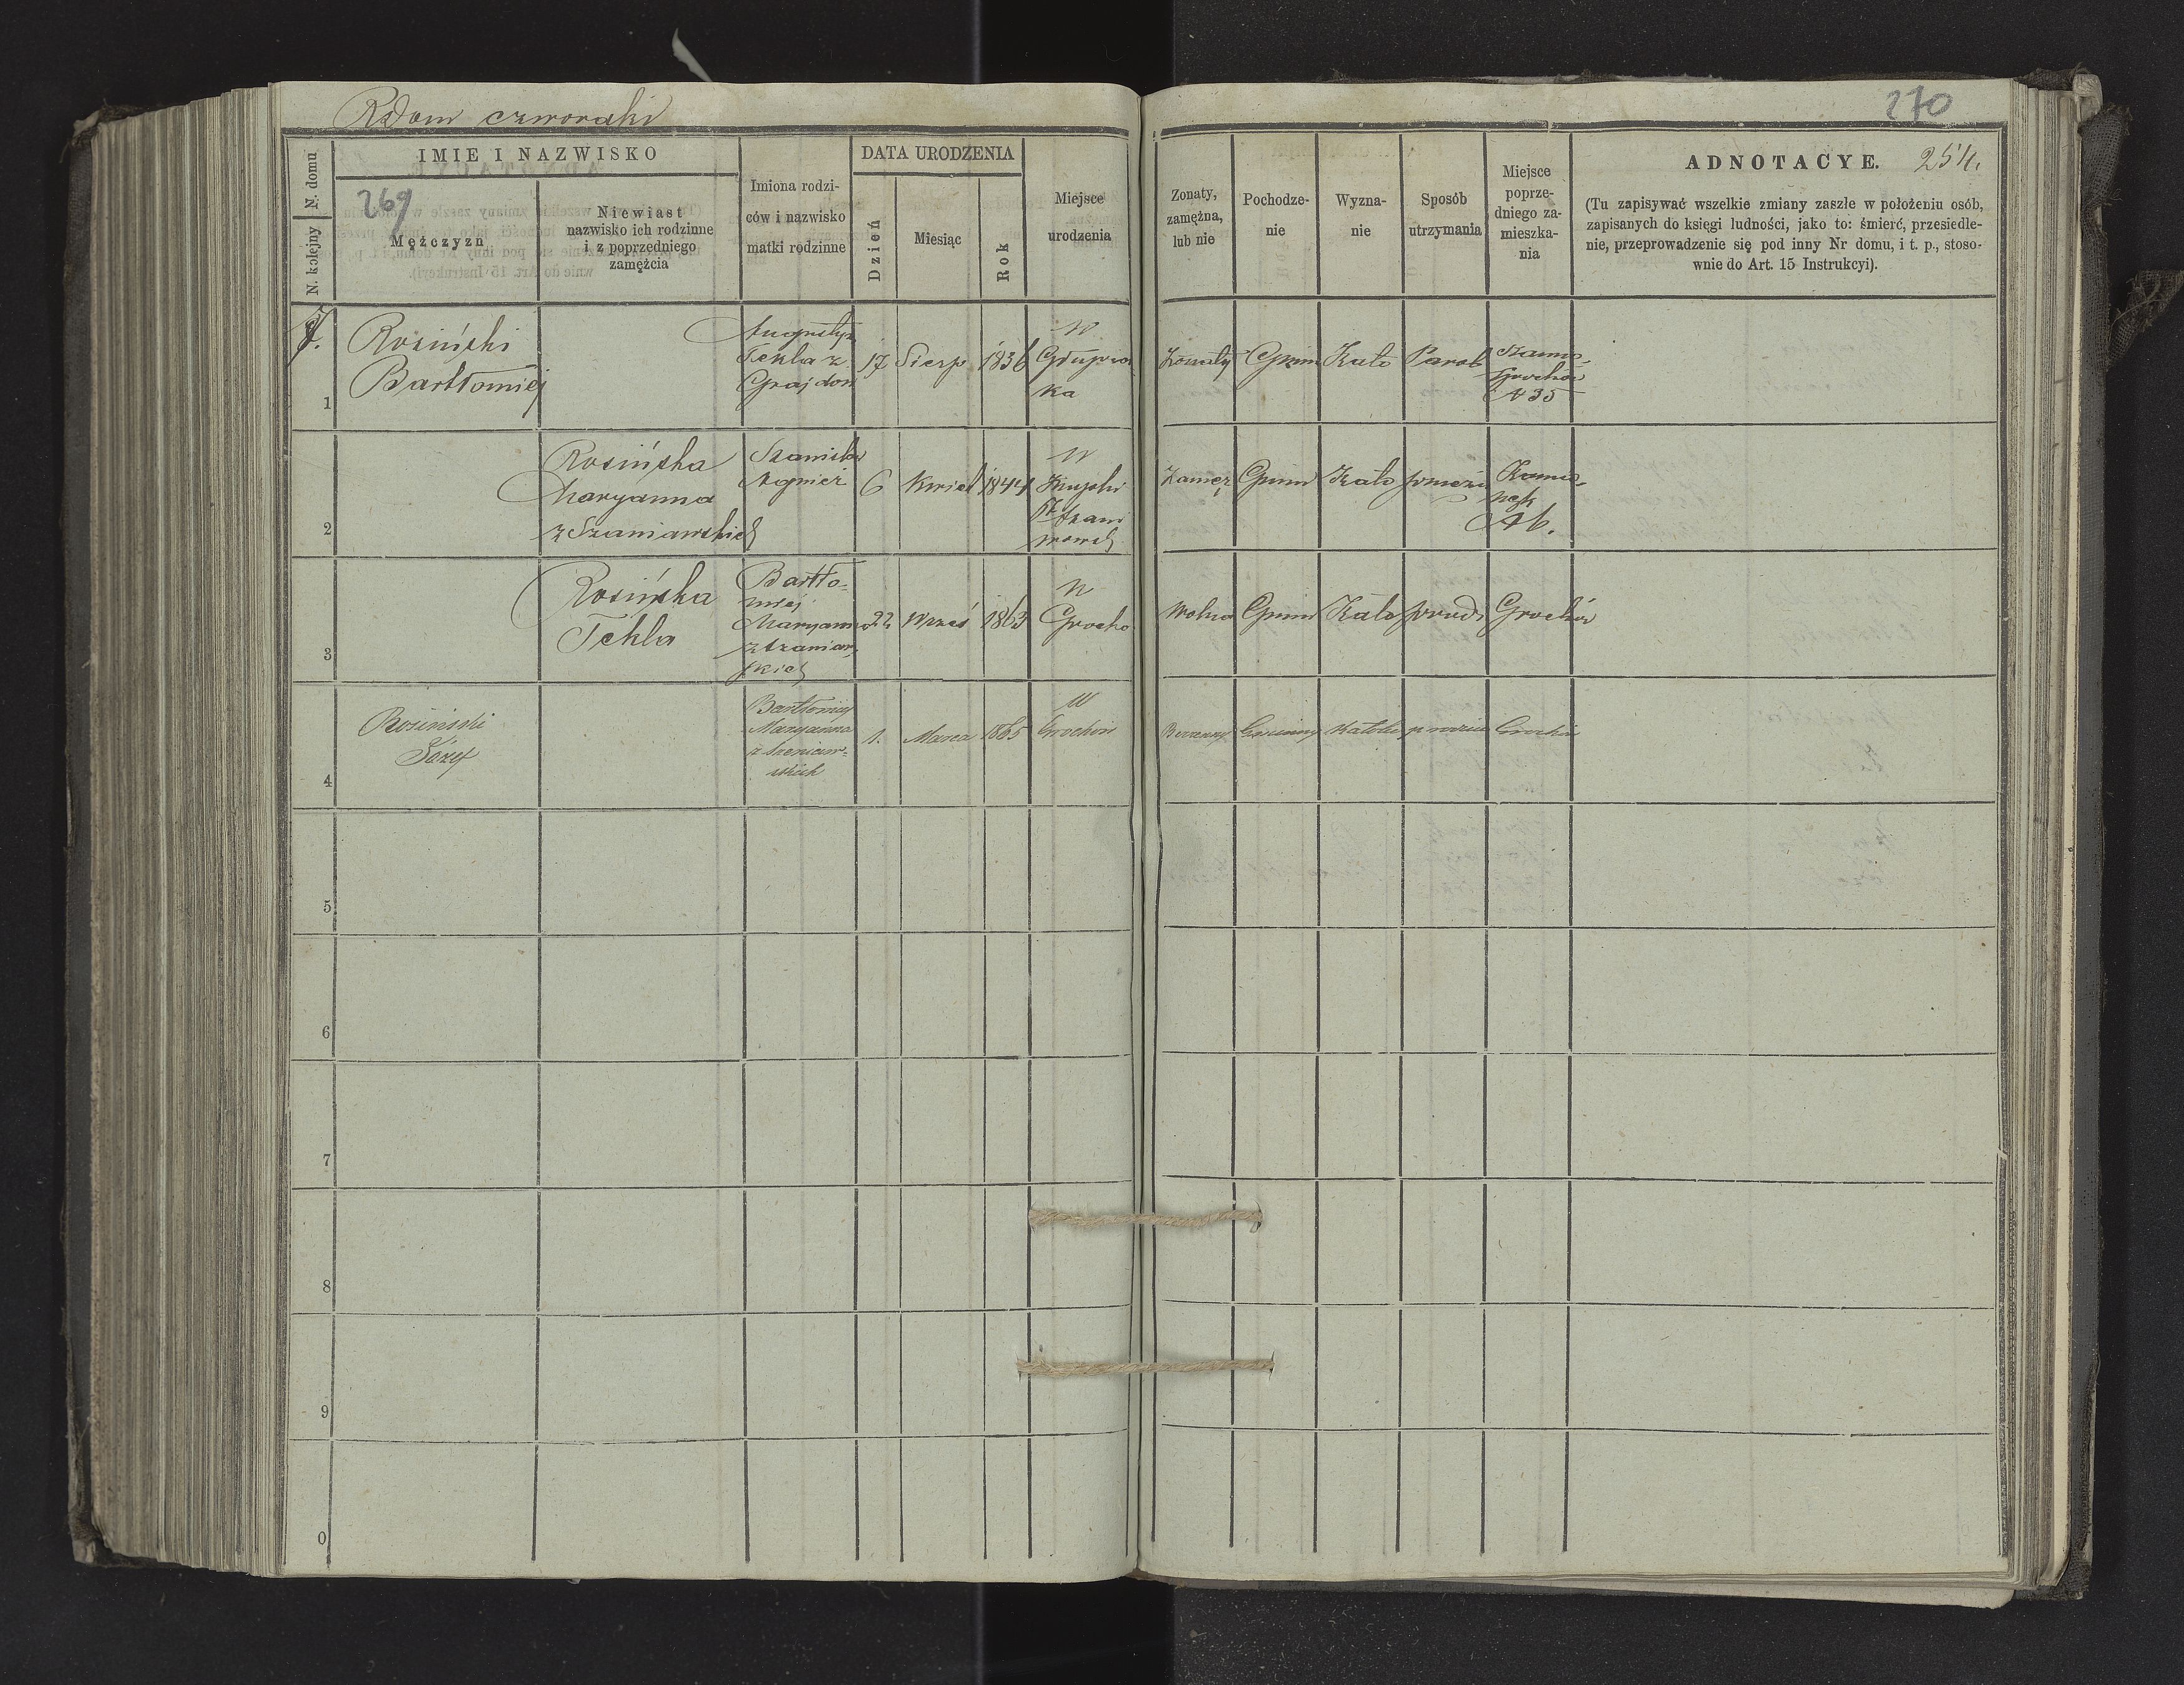 Dom czworaki
270
254.
N. domu
N. kolejny
IMIE I NAZWISKO
269
Mężczyzn
Niewiast
nazwisko ich rodzinne
i z poprzedniego
zamężcia
Imiona rodzi-
ców i nazwisko
matki rodzinne
DATA URODZENIA
Dzień
Miesiąc
Rok
Miejsce
urodzenia
Zonaty,
zamężna,
lub nie
Pochodze-
nie
Wyzna-
nie
Sposób
utrzymania
Miejsce
poprze-
dniego za-
mieszka-
nia
ADNOTACYE.
(Tu zapisywać wszelkie zmiany zaszłe w położeniu osób,
zapisanych do księgi ludności, jako to: śmierć, przesiedle-
nie, przeprowadzenie się pod inny Nr domu, i t. p., stoso-
wnie do Art. 15 Instrukcyi).
1
Rosiński
Bartłomiej
Augustyn
Tekla z
Grajdon
17
Sierp
1836
w
ka
Zonaty
Gmin
Kato
Parob
Grochów
N 35
2
Rosińska
Maryanna
z Szaniawskich
Stanisław
Agnieś
6
Kwiet
1844
w
Zamęż
Gmin
Kato
N 6.
3
Rosińska
Tekla
Bartło-
miej
Maryanna
z Szaniaw-
skich
22
Wrześ
1863
w
Grocho
Wolna
Gmin
Kato
Grochów
4
Rosiński
Józef
Bartłomiej
Maryanna
z Szeniaw-
skich
1.
Marca
1865
w
Grochów
Bezzenny
Gminny
Katolic
p rodzic
Grochów
5
6
7
8
9
0